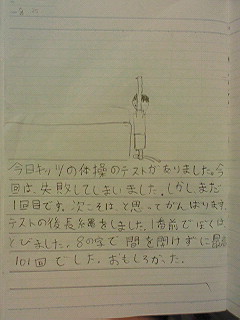 今日キッツの体操のテストがありました。今
回は、失敗してしまいました。しかしまだ
1回目です。次こそは、と思ってがんばります。
テストの後長縄をしました。1番前でぼくは、
とびました。8の字で間を開けずに最高
101回でした。おもしろかった。